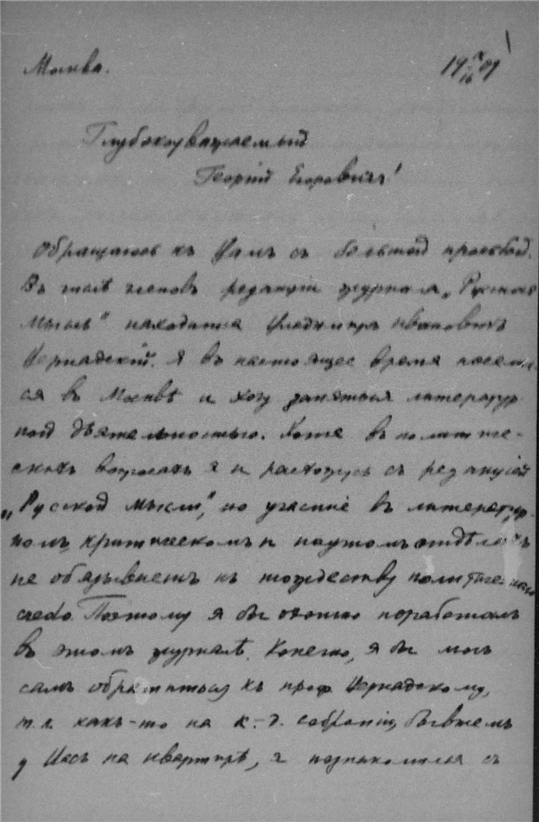 Москва.
19 IV/16 09
Глубокоуважаемый
Георгій Егоровичъ!
Обращаюсь къ Вамъ съ большой просьбой.
Въ числѣ членовъ редакціи журнала „Русская
Мысль" находится Владиміръ Ивановичъ
Вернадскій. Я въ настоящее время поселил-
ся въ Москвѣ и хочу заняться литератур-
ной дѣятельностью. Хотя въ политиче-
скихъ вопросахъ я и расхожусь съ редакціей
„Русской Мысли", но участіе въ литератур-
номъ, критическомъ и научномъ отдѣлахъ
не обязываетъ къ тождеству политическаго
credo. Поэтому я бы охотно поработалъ
въ этомъ журналѣ. Конечно, я бы могъ
самъ обратиться къ проф. Вернадскому,
т. к. какъ-то на к.-д. собраніи, бывшемъ
у Васъ на квартирѣ, я познакомился съ